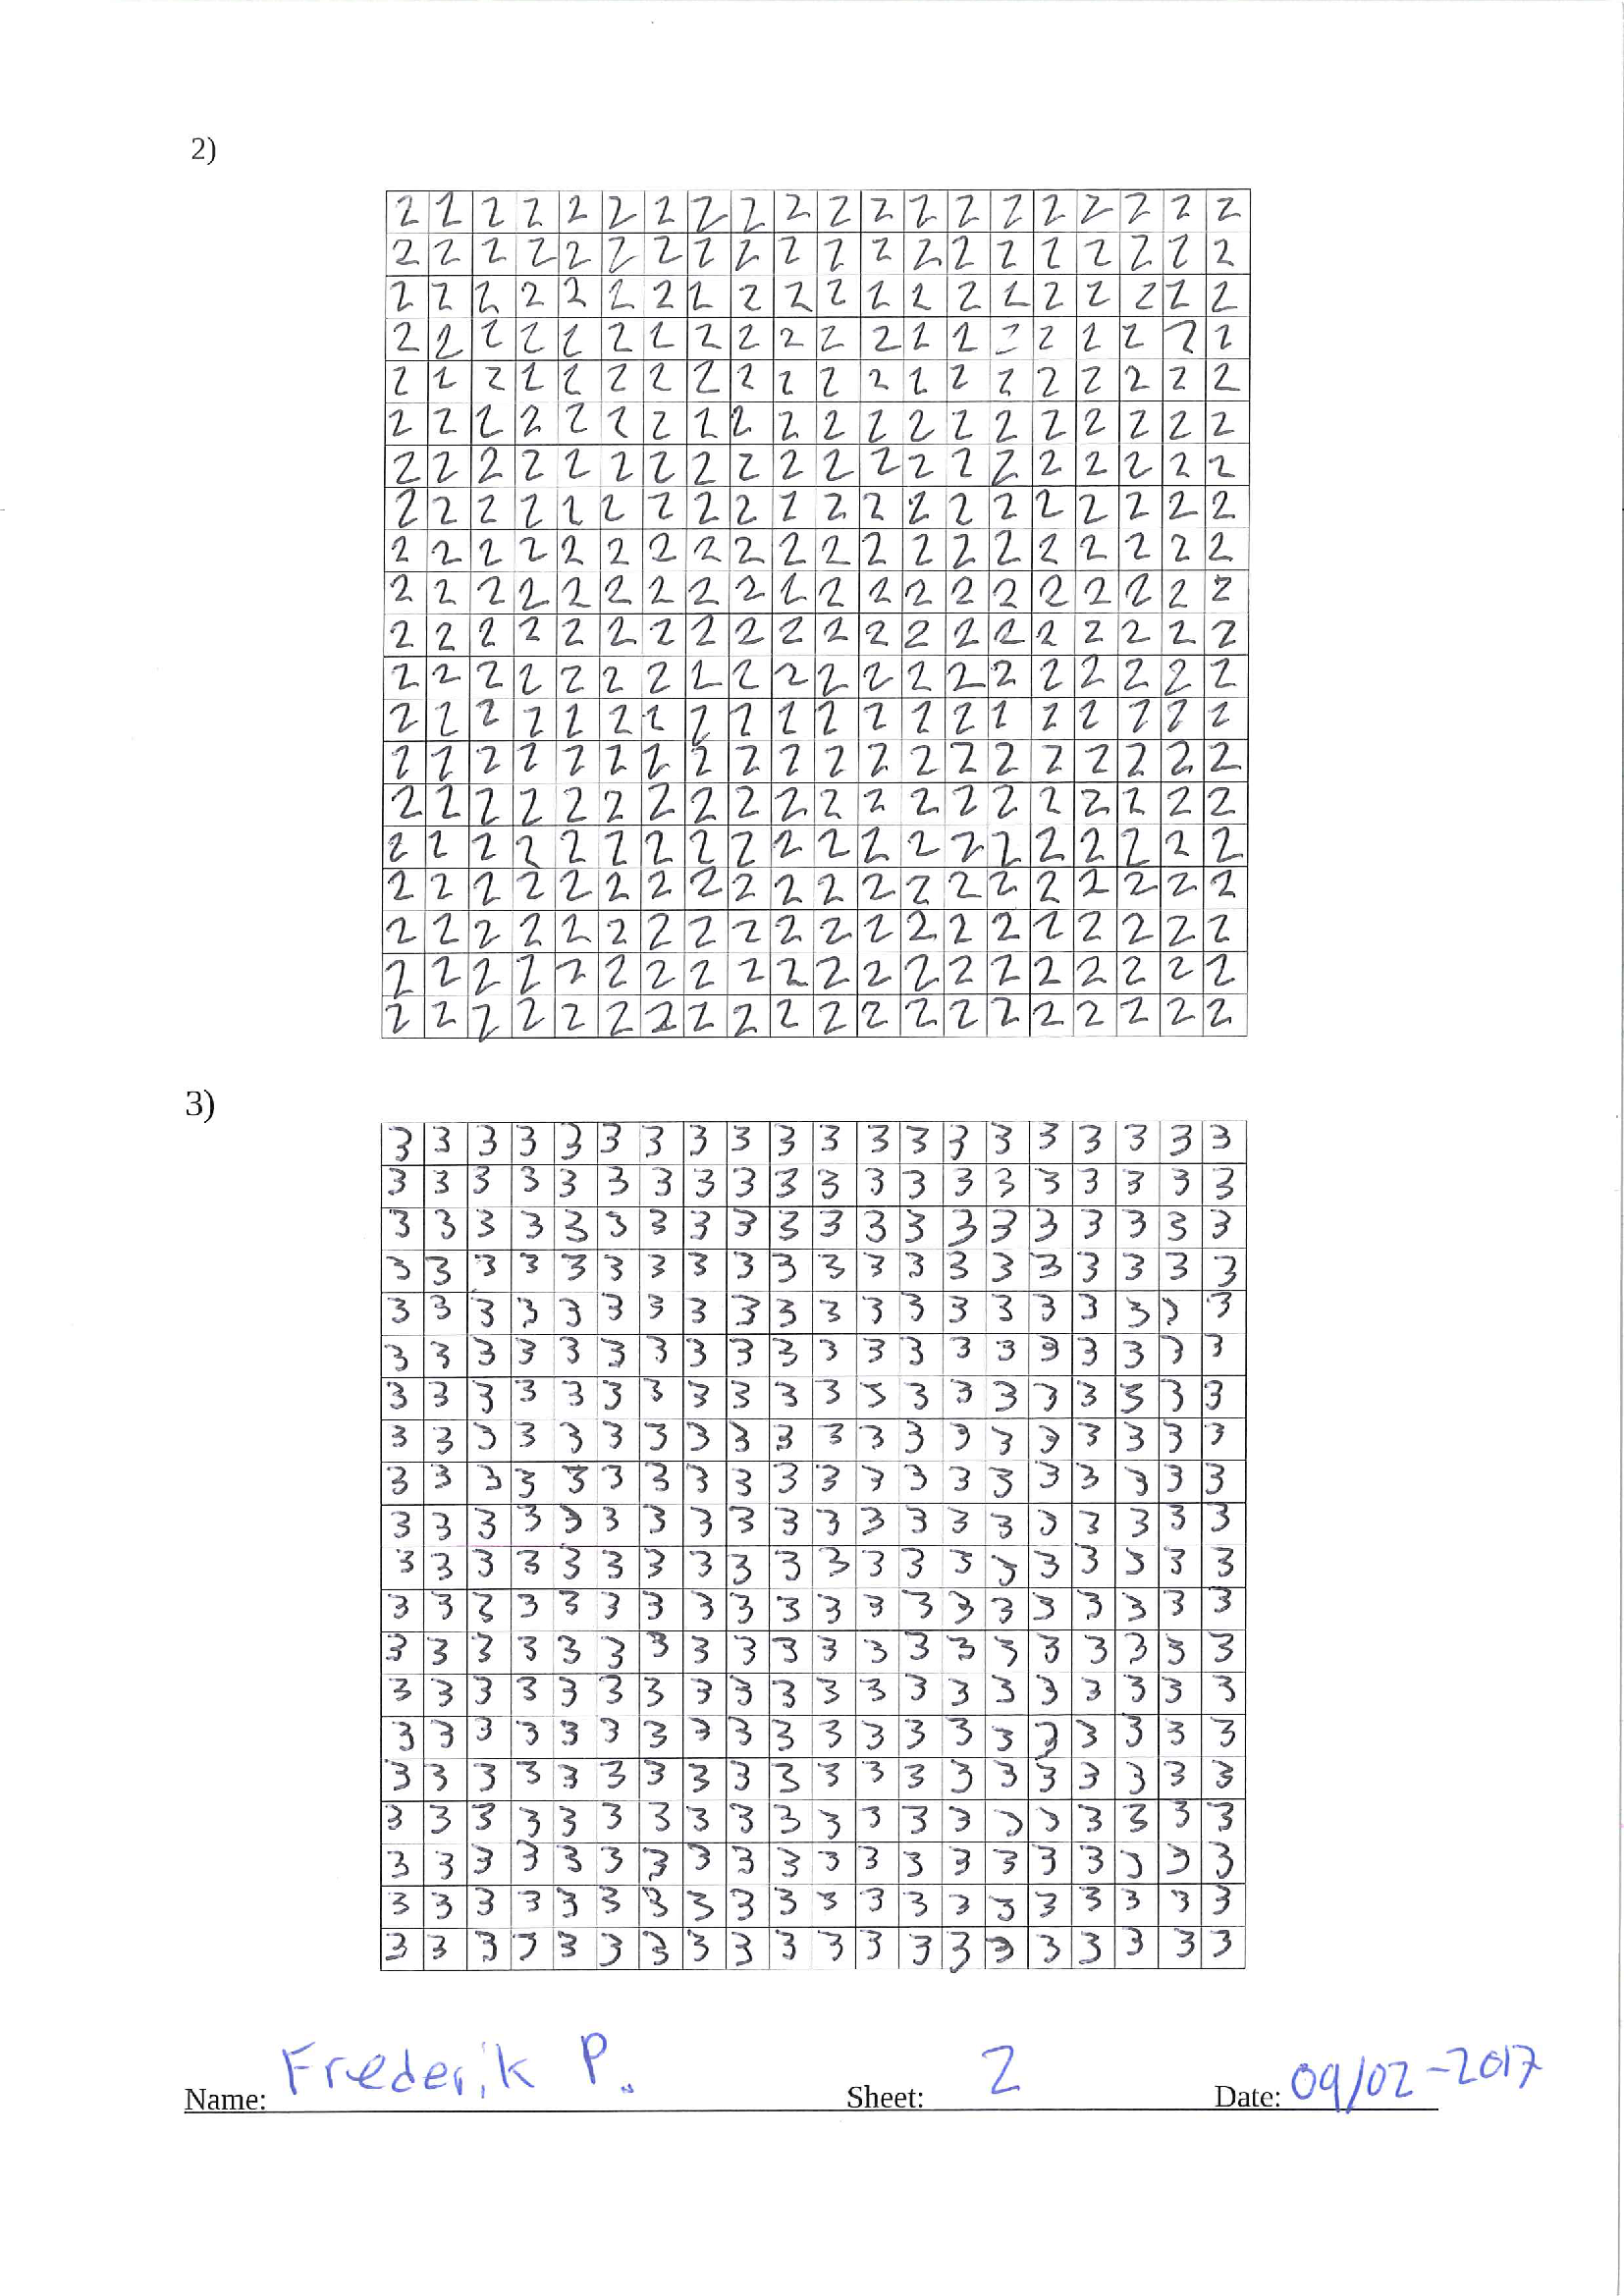 2)
2 2 2 2 2 2 2 2 2 2 2 2 2 2 2 2 2 2 2 2
2 2 2 2 2 2 2 2 2 2 2 2 2 2 2 2 2 2 2 2
2 2 2 2 2 2 2 2 2 2 2 2 2 2 2 2 2 2 2 2
2 2 2 2 2 2 2 2 2 2 2 2 2 2 2 2 2 2 2 2
2 2 2 2 2 2 2 2 2 2 2 2 2 2 2 2 2 2 2 2
2 2 2 2 2 2 2 2 2 2 2 2 2 2 2 2 2 2 2 2
2 2 2 2 2 2 2 2 2 2 2 2 2 2 2 2 2 2 2 2
2 2 2 2 2 2 2 2 2 2 2 2 2 2 2 2 2 2 2 2
2 2 2 2 2 2 2 2 2 2 2 2 2 2 2 2 2 2 2 2
2 2 2 2 2 2 2 2 2 2 2 2 2 2 2 2 2 2 2 2
2 2 2 2 2 2 2 2 2 2 2 2 2 2 2 2 2 2 2 2
2 2 2 2 2 2 2 2 2 2 2 2 2 2 2 2 2 2 2 2
2 2 2 2 2 2 2 2 2 2 2 2 2 2 2 2 2 2 2 2
2 2 2 2 2 2 2 2 2 2 2 2 2 2 2 2 2 2 2 2
2 2 2 2 2 2 2 2 2 2 2 2 2 2 2 2 2 2 2 2
2 2 2 2 2 2 2 2 2 2 2 2 2 2 2 2 2 2 2 2
2 2 2 2 2 2 2 2 2 2 2 2 2 2 2 2 2 2 2 2
2 2 2 2 2 2 2 2 2 2 2 2 2 2 2 2 2 2 2 2
2 2 2 2 2 2 2 2 2 2 2 2 2 2 2 2 2 2 2 2
2 2 2 2 2 2 2 2 2 2 2 2 2 2 2 2 2 2 2 2
3)
3 3 3 3 3 3 3 3 3 3 3 3 3 3 3 3 3 3 3 3
3 3 3 3 3 3 3 3 3 3 3 3 3 3 3 3 3 3 3 3
3 3 3 3 3 3 3 3 3 3 3 3 3 3 3 3 3 3 3 3
3 3 3 3 3 3 3 3 3 3 3 3 3 3 3 3 3 3 3 3
3 3 3 3 3 3 3 3 3 3 3 3 3 3 3 3 3 3 3 3
3 3 3 3 3 3 3 3 3 3 3 3 3 3 3 3 3 3 3 3
3 3 3 3 3 3 3 3 3 3 3 3 3 3 3 3 3 3 3 3
3 3 3 3 3 3 3 3 3 3 3 3 3 3 3 3 3 3 3 3
3 3 3 3 3 3 3 3 3 3 3 3 3 3 3 3 3 3 3 3
3 3 3 3 3 3 3 3 3 3 3 3 3 3 3 3 3 3 3 3
3 3 3 3 3 3 3 3 3 3 3 3 3 3 3 3 3 3 3 3
3 3 3 3 3 3 3 3 3 3 3 3 3 3 3 3 3 3 3 3
3 3 3 3 3 3 3 3 3 3 3 3 3 3 3 3 3 3 3 3
3 3 3 3 3 3 3 3 3 3 3 3 3 3 3 3 3 3 3 3
3 3 3 3 3 3 3 3 3 3 3 3 3 3 3 3 3 3 3 3
3 3 3 3 3 3 3 3 3 3 3 3 3 3 3 3 3 3 3 3
3 3 3 3 3 3 3 3 3 3 3 3 3 3 3 3 3 3 3 3
3 3 3 3 3 3 3 3 3 3 3 3 3 3 3 3 3 3 3 3
3 3 3 3 3 3 3 3 3 3 3 3 3 3 3 3 3 3 3 3
3 3 3 3 3 3 3 3 3 3 3 3 3 3 3 3 3 3 3 3
Name: Frederik P. Sheet: 2 Date: 09/02-2017